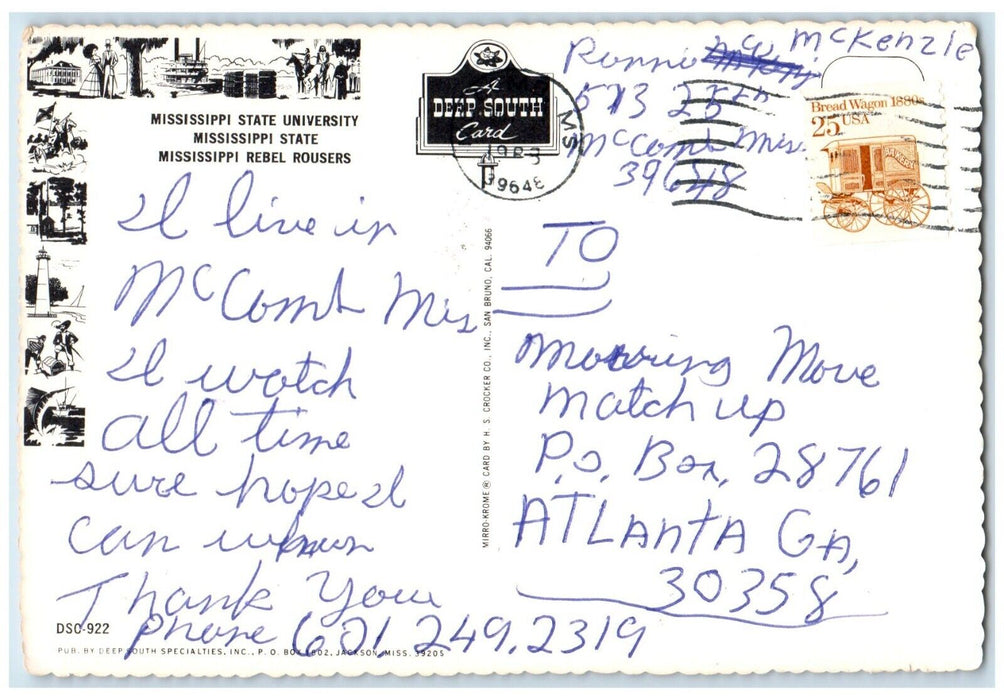 MISSISSIPPI STATE UNIVERSITY
MISSISSIPPI STATE
MISSISSIPPI REBEL ROUSERS
A
DEEP SOUTH
Card
MS
39648
Ronnie McKenzie
513 25th
McComb Mis.
39648
Bread Wagon 1880s
25 USA
BAKERY
I live in
McComb Mis
I watch
all time
sure hope I
can
Thank You
phone (601 249.2319
TO
Morning Move
match up
P.O. Box, 28761
ATLANTA GA,
30358
MIRRO-KROME® CARD BY H. S. CROCKER CO., INC., SAN BRUNO, CAL. 94066
DSO-922
PUB. BY DEEP SOUTH SPECIALTIES, INC., P. O. BOX 1802, JACKSON, MISS. 39205